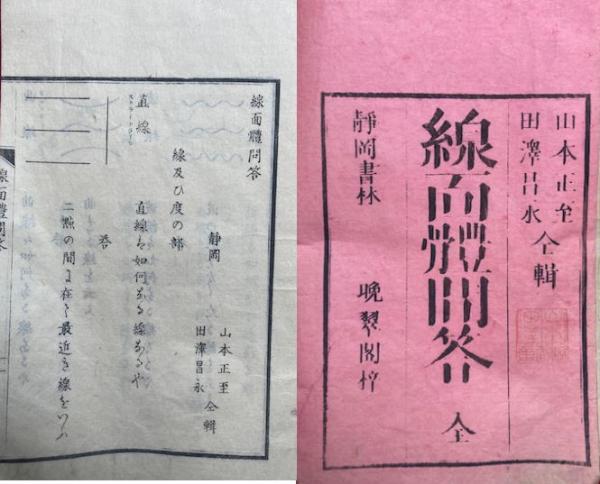 山本正至
田澤昌永
仝輯
線面體問答 全
靜岡書林 晩翠閣梓
線面體問答
静岡
山本正至
田津昌永
仝輯
線及ひ度の部
直線
直線は如何なる線なるや
答
二㸃の間に在る最近き線をいふ
線面體問答